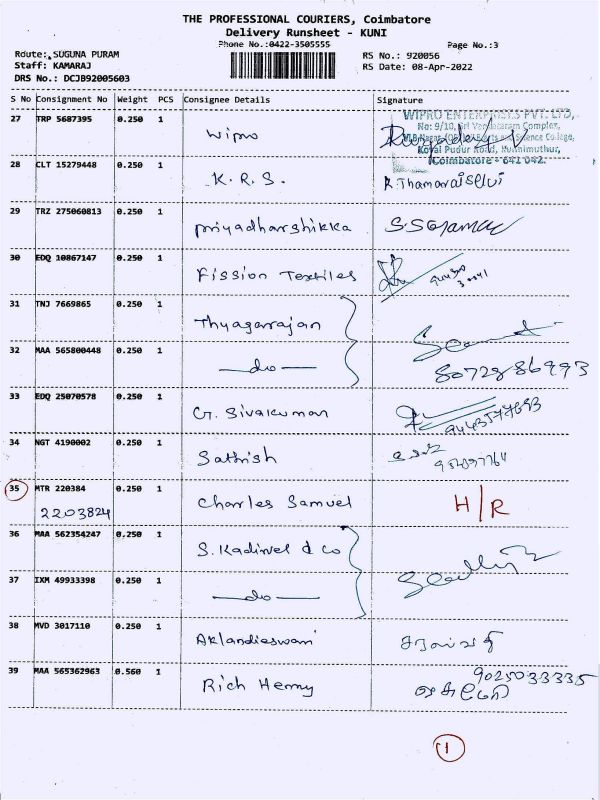 THE PROFESSIONAL COURIERS, Coimbatore
Delivery Runsheet - KUNI
Phone No.:0422-3505555 Page No.:3
Route: SUGUNA PURAM
Staff: KAMARAJ
DRS No.: DCJB92005603
RS No.: 920056
RS Date: 08-Apr-2022
S No Consignment No Weight PCS Consignee Details Signature
27 TRP 5687395 0.250 1 Wipro
WIPRO ENTERPRISES PVT. LTD,
Coimbatore - 641 042.
28 CLT 15279448 0.250 1 K. R. S. R. Thamaraiselvi
29 TRZ 275060813 0.250 1 Priyadharshikka
30 EDQ 10867147 0.250 1 Fission Textiles
31 TNJ 7669865 0.250 1 Thyagarrajan
32 MAA 565800448 0.250 1 —do—
33 EDQ 25070578 0.250 1 G. Sivakumar
34 NGT 4190002 0.250 1 Sathish
35 MTR 220384 0.250 1 Charles Samuel H/R
2203824
36 MAA 562354247 0.250 1 S. Kadirvel & Co
37 IXM 49933398 0.250 1 —do—
38 MVD 3017110 0.250 1
39 MAA 565362963 0.560 1 Rich Henny 9025033335